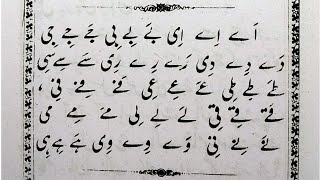 اَے اِے اِی بَے بِے بِی جَے جِے جِی
دَے دِے دِی رَے رِے رِی سَے سِے سِی
طَے طِے طِی عَے عِے عِی فَے فِے فِی ،
قَے قِے قِی لَے لِے لِی مَے مِے مِی
نَے نِے نِی وَے وِے وِی ہَے ہِے ہِی